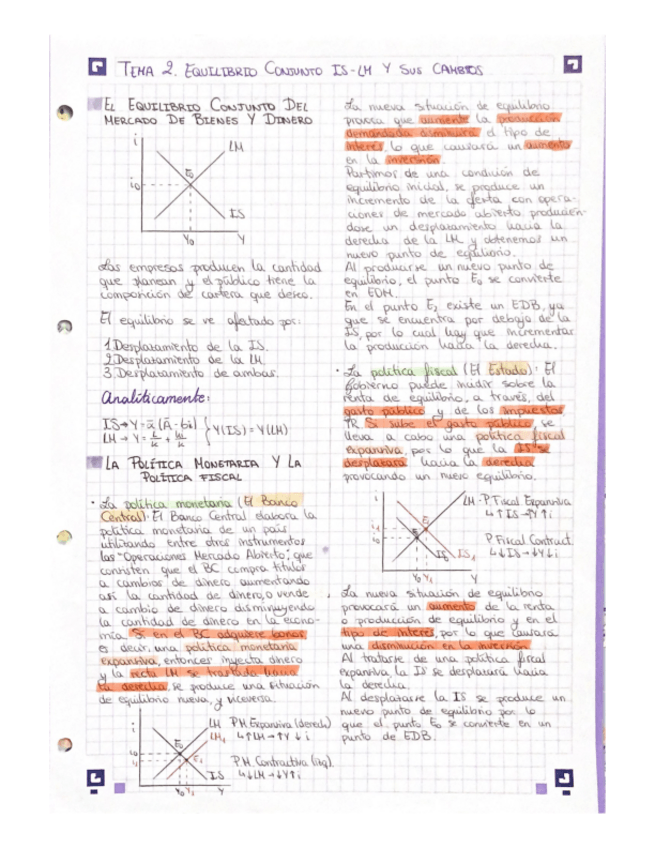 TEMA 2. EQUILIBRIO CONJUNTO IS-LM Y SUS CAMBIOS
EL EQUILIBRIO CONJUNTO DEL
MERCADO DE BIENES Y DINERO
i
LM
E₀
i₀
IS
Y₀
Y
Las empresas producen la cantidad
que planean y el público tiene la
composición de cartera que desea.
El equilibrio se ve afectado por:
1. Desplazamiento de la IS.
2. Desplazamiento de la LM.
3. Desplazamiento de ambas.
Analíticamente:
IS→Y=α(Ā-bi)
LM→Y=
Y(IS)=Y(LM)
LA POLÍTICA MONETARIA Y LA
POLÍTICA FISCAL
· La política monetaria (El Banco
Central): El Banco Central elabora la
política monetaria de un país
utilizando entre otros instrumentos
las "Operaciones Mercado Abierto", que
consisten que el BC compra títulos
a cambios de dinero aumentando
así la cantidad de dinero, o vende
a cambio de dinero disminuyendo
la cantidad de dinero en la econo-
mía. Si en el BC adquiere bonos,
es decir, una política monetaria
expansiva, entonces inyecta dinero
y la recta LM se traslada hacia
la derecha, se produce una situación
de equilibrio nueva, y viceversa.
i
LM
LM₁
E₀
E₁
IS
Y₀ Y₁
Y
PM Expansiva (derecha)
↳↑LM→↑Y ↓i
PM Contractiva (izq).
↳↓LM→↓Y↑i
La nueva situación de equilibrio
provoca que aumente la producción
demandada disminuirá el tipo de
interés, lo que causará un aumento
en la inversión.
Partimos de una condición de
equilibrio inicial, se produce un
incremento de la oferta con opera-
ciones de mercado abierto producién-
dose un desplazamiento hacia la
derecha de la LM y obtenemos un
nuevo punto de equilibrio.
Al producirse un nuevo punto de
equilibrio, el punto E₀ se convierte
en EOM.
En el punto E₁ existe un EDB, ya
que se encuentra por debajo de la
IS, por lo cual hay que incrementar
la producción hacia la derecha.
· La política fiscal (El Estado): El
Gobierno puede incidir sobre la
renta de equilibrio, a través, del
gasto público y de los impuestos,
TR. Si sube el gasto público, se
lleva a cabo una política fiscal
expansiva, por lo que la IS se
desplazará hacia la derecha
provocando un nuevo equilibrio.
i
LM
E₁
E₀
IS
IS₁
Y₀ Y₁
Y
P. Fiscal Expansiva
↳↑IS→↑Y↑i
P. Fiscal Contract.
↳↓IS→↓Y↓i
La nueva situación de equilibrio
provocará un aumento de la renta
o producción de equilibrio y en el
tipo de interés, por lo que causará
una disminución en la inversión.
Al tratarse de una política fiscal
expansiva, la IS se desplazará hacia
la derecha.
Al desplazarse la IS se produce un
nuevo punto de equilibrio por lo
que el punto E₀ se convierte en un
punto de EDB.